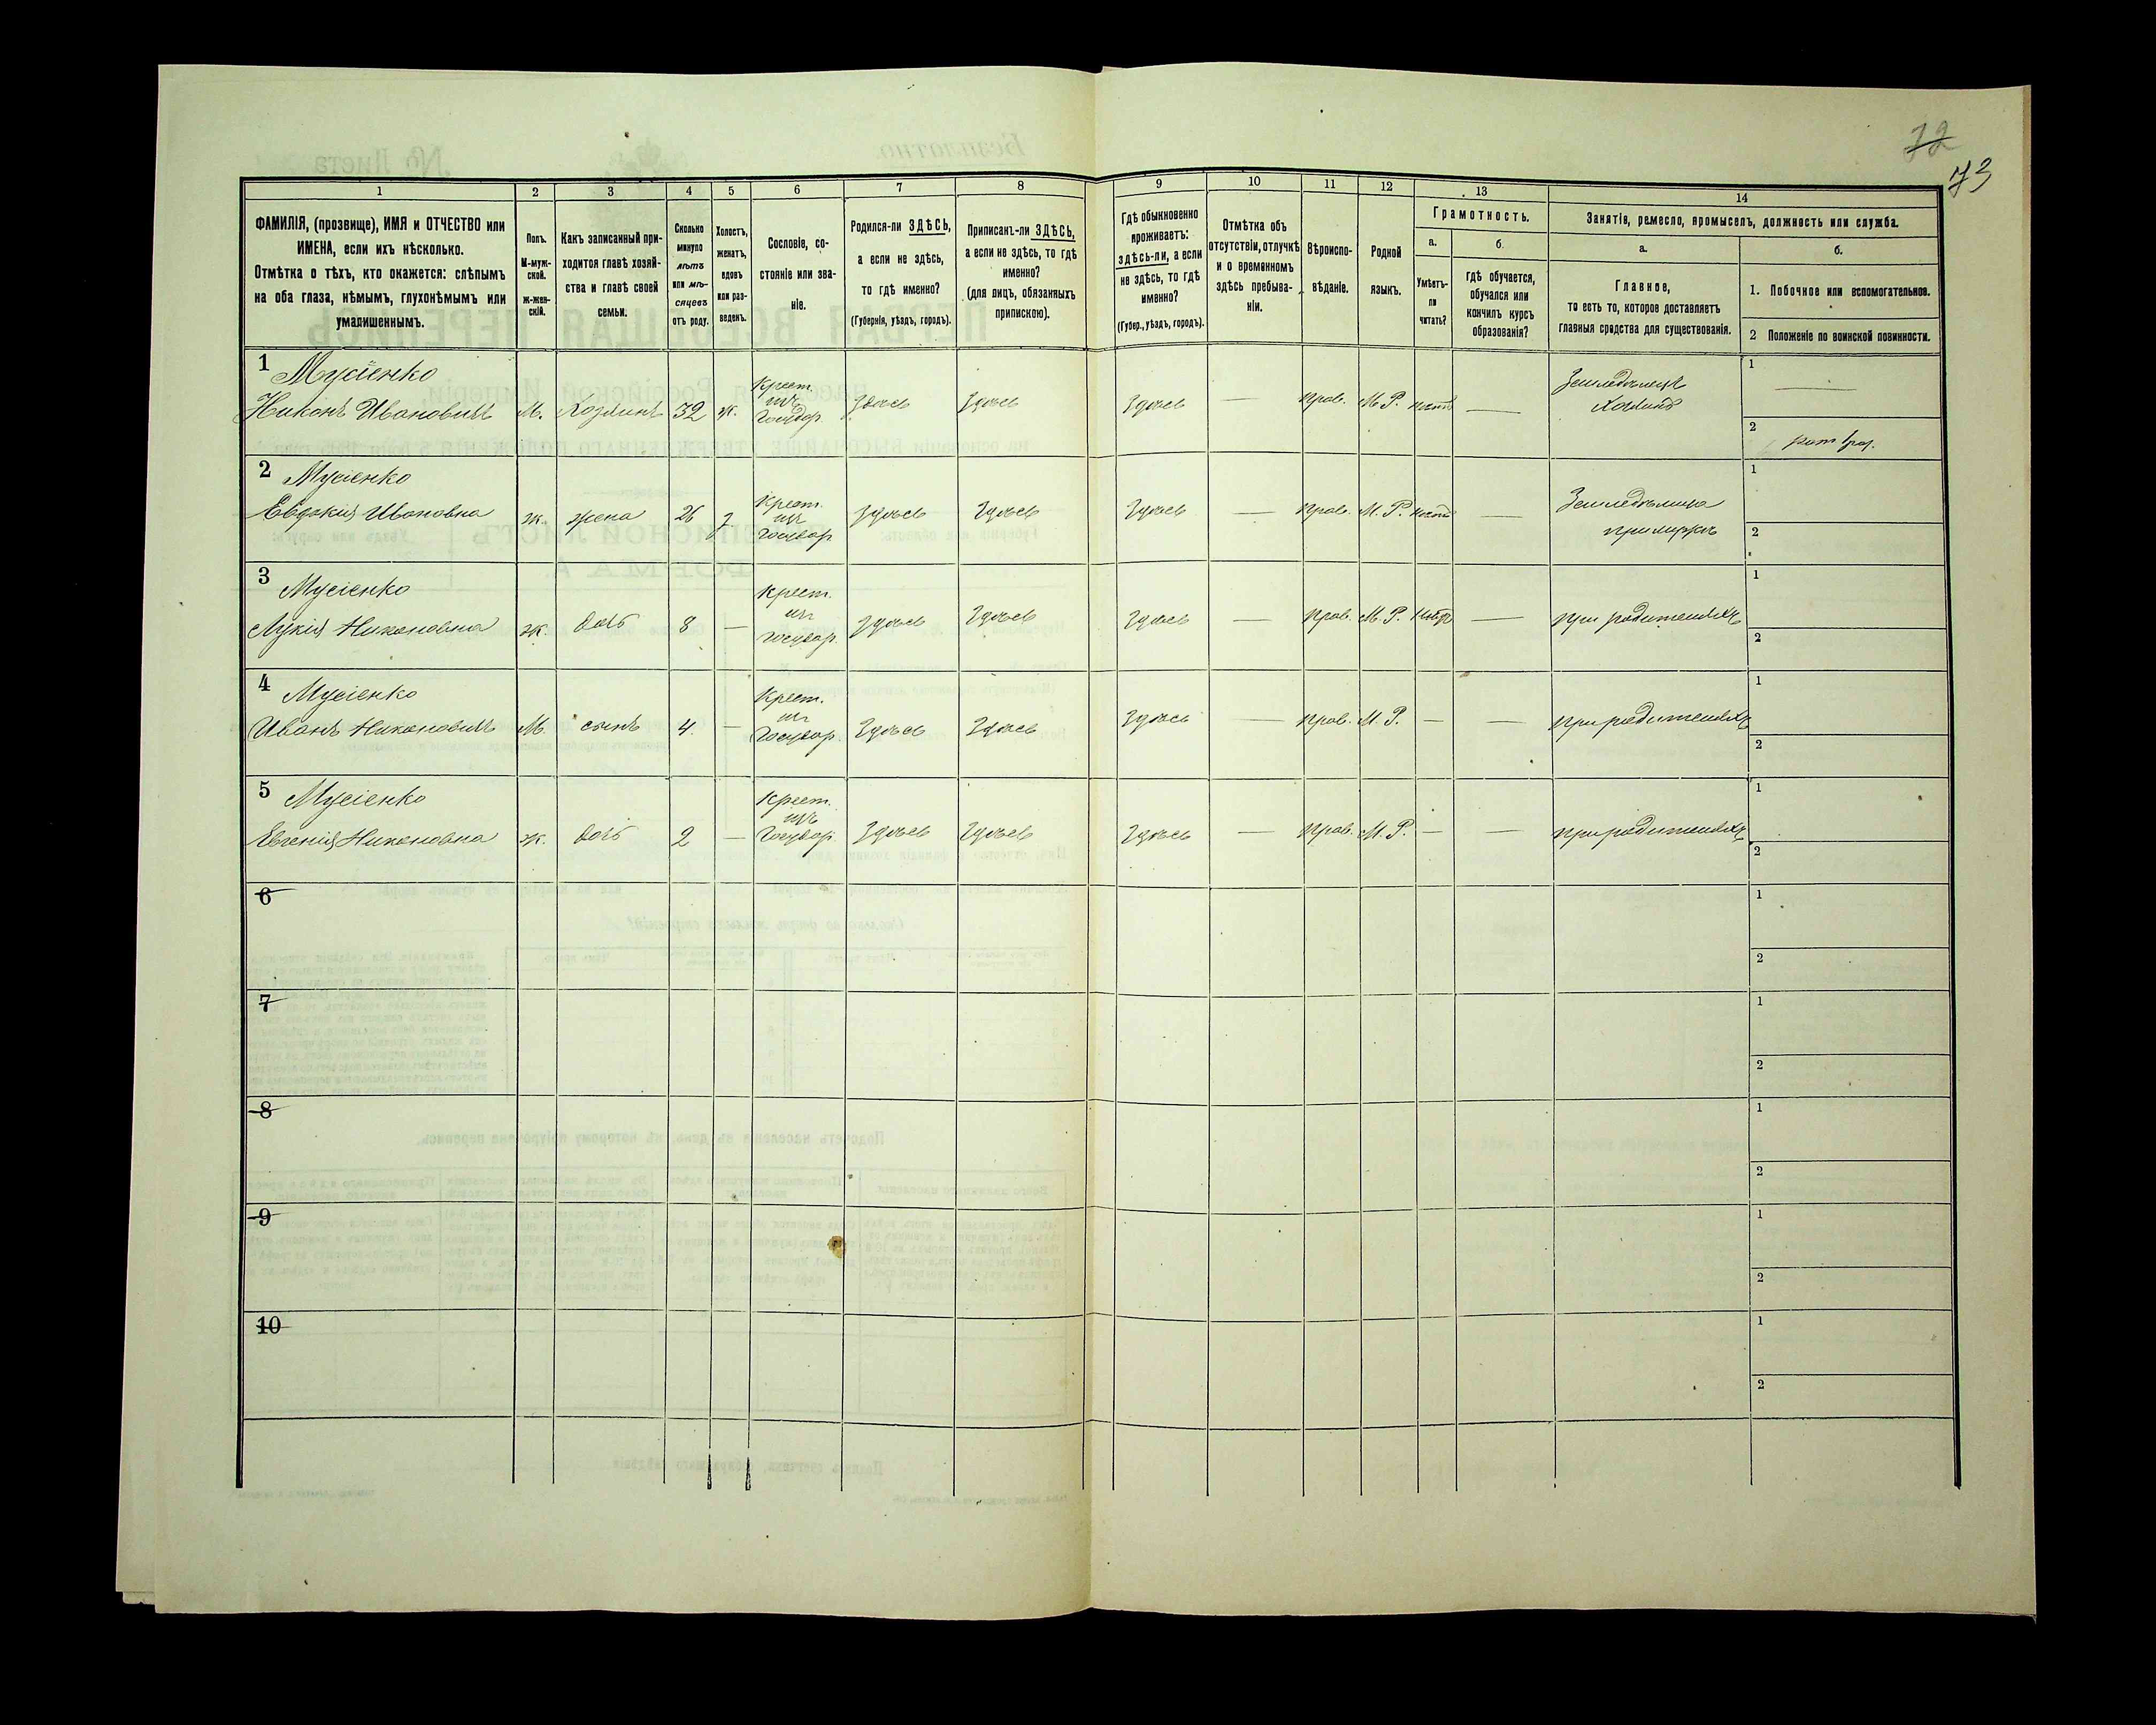 72
73
1
2
3
4
5
6
7
8
9
10
11
12
13
14
ФАМИЛІЯ, (прозвище), ИМЯ и ОТЧЕСТВО или
ИМЕНА, если ихъ нѣсколько.
Отмѣтка о тѣхъ, кто окажется: слѣпымъ
на оба глаза, нѣмымъ, глухонѣмымъ или
умалишеннымъ.
Полъ.
М-муж-
ской.
ж-жен-
скій.
Какъ записанный при-
ходится главѣ хозяй-
ства и главѣ своей
семьи.
Сколько
минуло
лѣтъ
или мѣ-
сяцевъ
отъ роду.
Холостъ,
женатъ,
вдовъ
или раз-
веденъ.
Сословіе, со-
стояніе или зва-
ніе.
Родился-ли ЗДѢСЬ,
а если не здѣсь,
то гдѣ именно?
(Губернія, уѣздъ, городъ).
Приписанъ-ли ЗДѢСЬ,
а если не здѣсь, то гдѣ
именно?
(для лицъ, обязанныхъ
припискою).
Гдѣ обыкновенно
проживаетъ:
здѣсь-ли, а если
не здѣсь, то гдѣ
именно?
(Губер., уѣздъ, городъ).
Отмѣтка объ
отсутствіи, отлучкѣ
и о временномъ
здѣсь пребыва-
ніи.
Вѣроиспо-
вѣданіе.
Родной
языкъ.
Грамотность.
а.
Умѣетъ-
ли
читать?
б.
гдѣ обучается,
обучался или
кончилъ курсъ
образованія?
Занятія, ремесло, промыселъ, должность или служба.
а.
Главное,
то есть то, которое доставляетъ
главныя средства для существованія.
б.
1. Побочное или вспомогательное.
2 Положеніе по воинской повинности.
1 Мусіенко
Никонъ Ивановичъ М. Хозяинъ 32 ж.
Крест.
изъ
Государ.
Здѣсь Здѣсь Здѣсь — прав. М. Р. —
Земледѣлецъ
Хозяинъ
1 —
2
2 Мусіенко
Евдокія Ивановна ж. жена 26
Крест.
изъ
Государ
Здѣсь Здѣсь Здѣсь — прав. М. Р. —
Земледѣлица
при мужѣ
1
2
3 Мусіенко
Лукія Никоновна ж. дочь 8 —
Крест.
изъ
Государ.
Здѣсь Здѣсь Здѣсь — прав. М. Р. — при родителяхъ
1
2
4 Мусіенко
Иванъ Никоновичъ М. сынъ 4. —
Крест.
изъ
Государ.
Здѣсь Здѣсь Здѣсь — прав. М. Р. — — при родителяхъ
1
2
5 Мусіенко
Евгенія Никоновна ж. дочь 2 —
Крест.
изъ
Государ.
Здѣсь Здѣсь Здѣсь — прав. М. Р. — — при родителяхъ
1
2
6
1
2
7
1
2
8
1
2
9
1
2
10
1
2